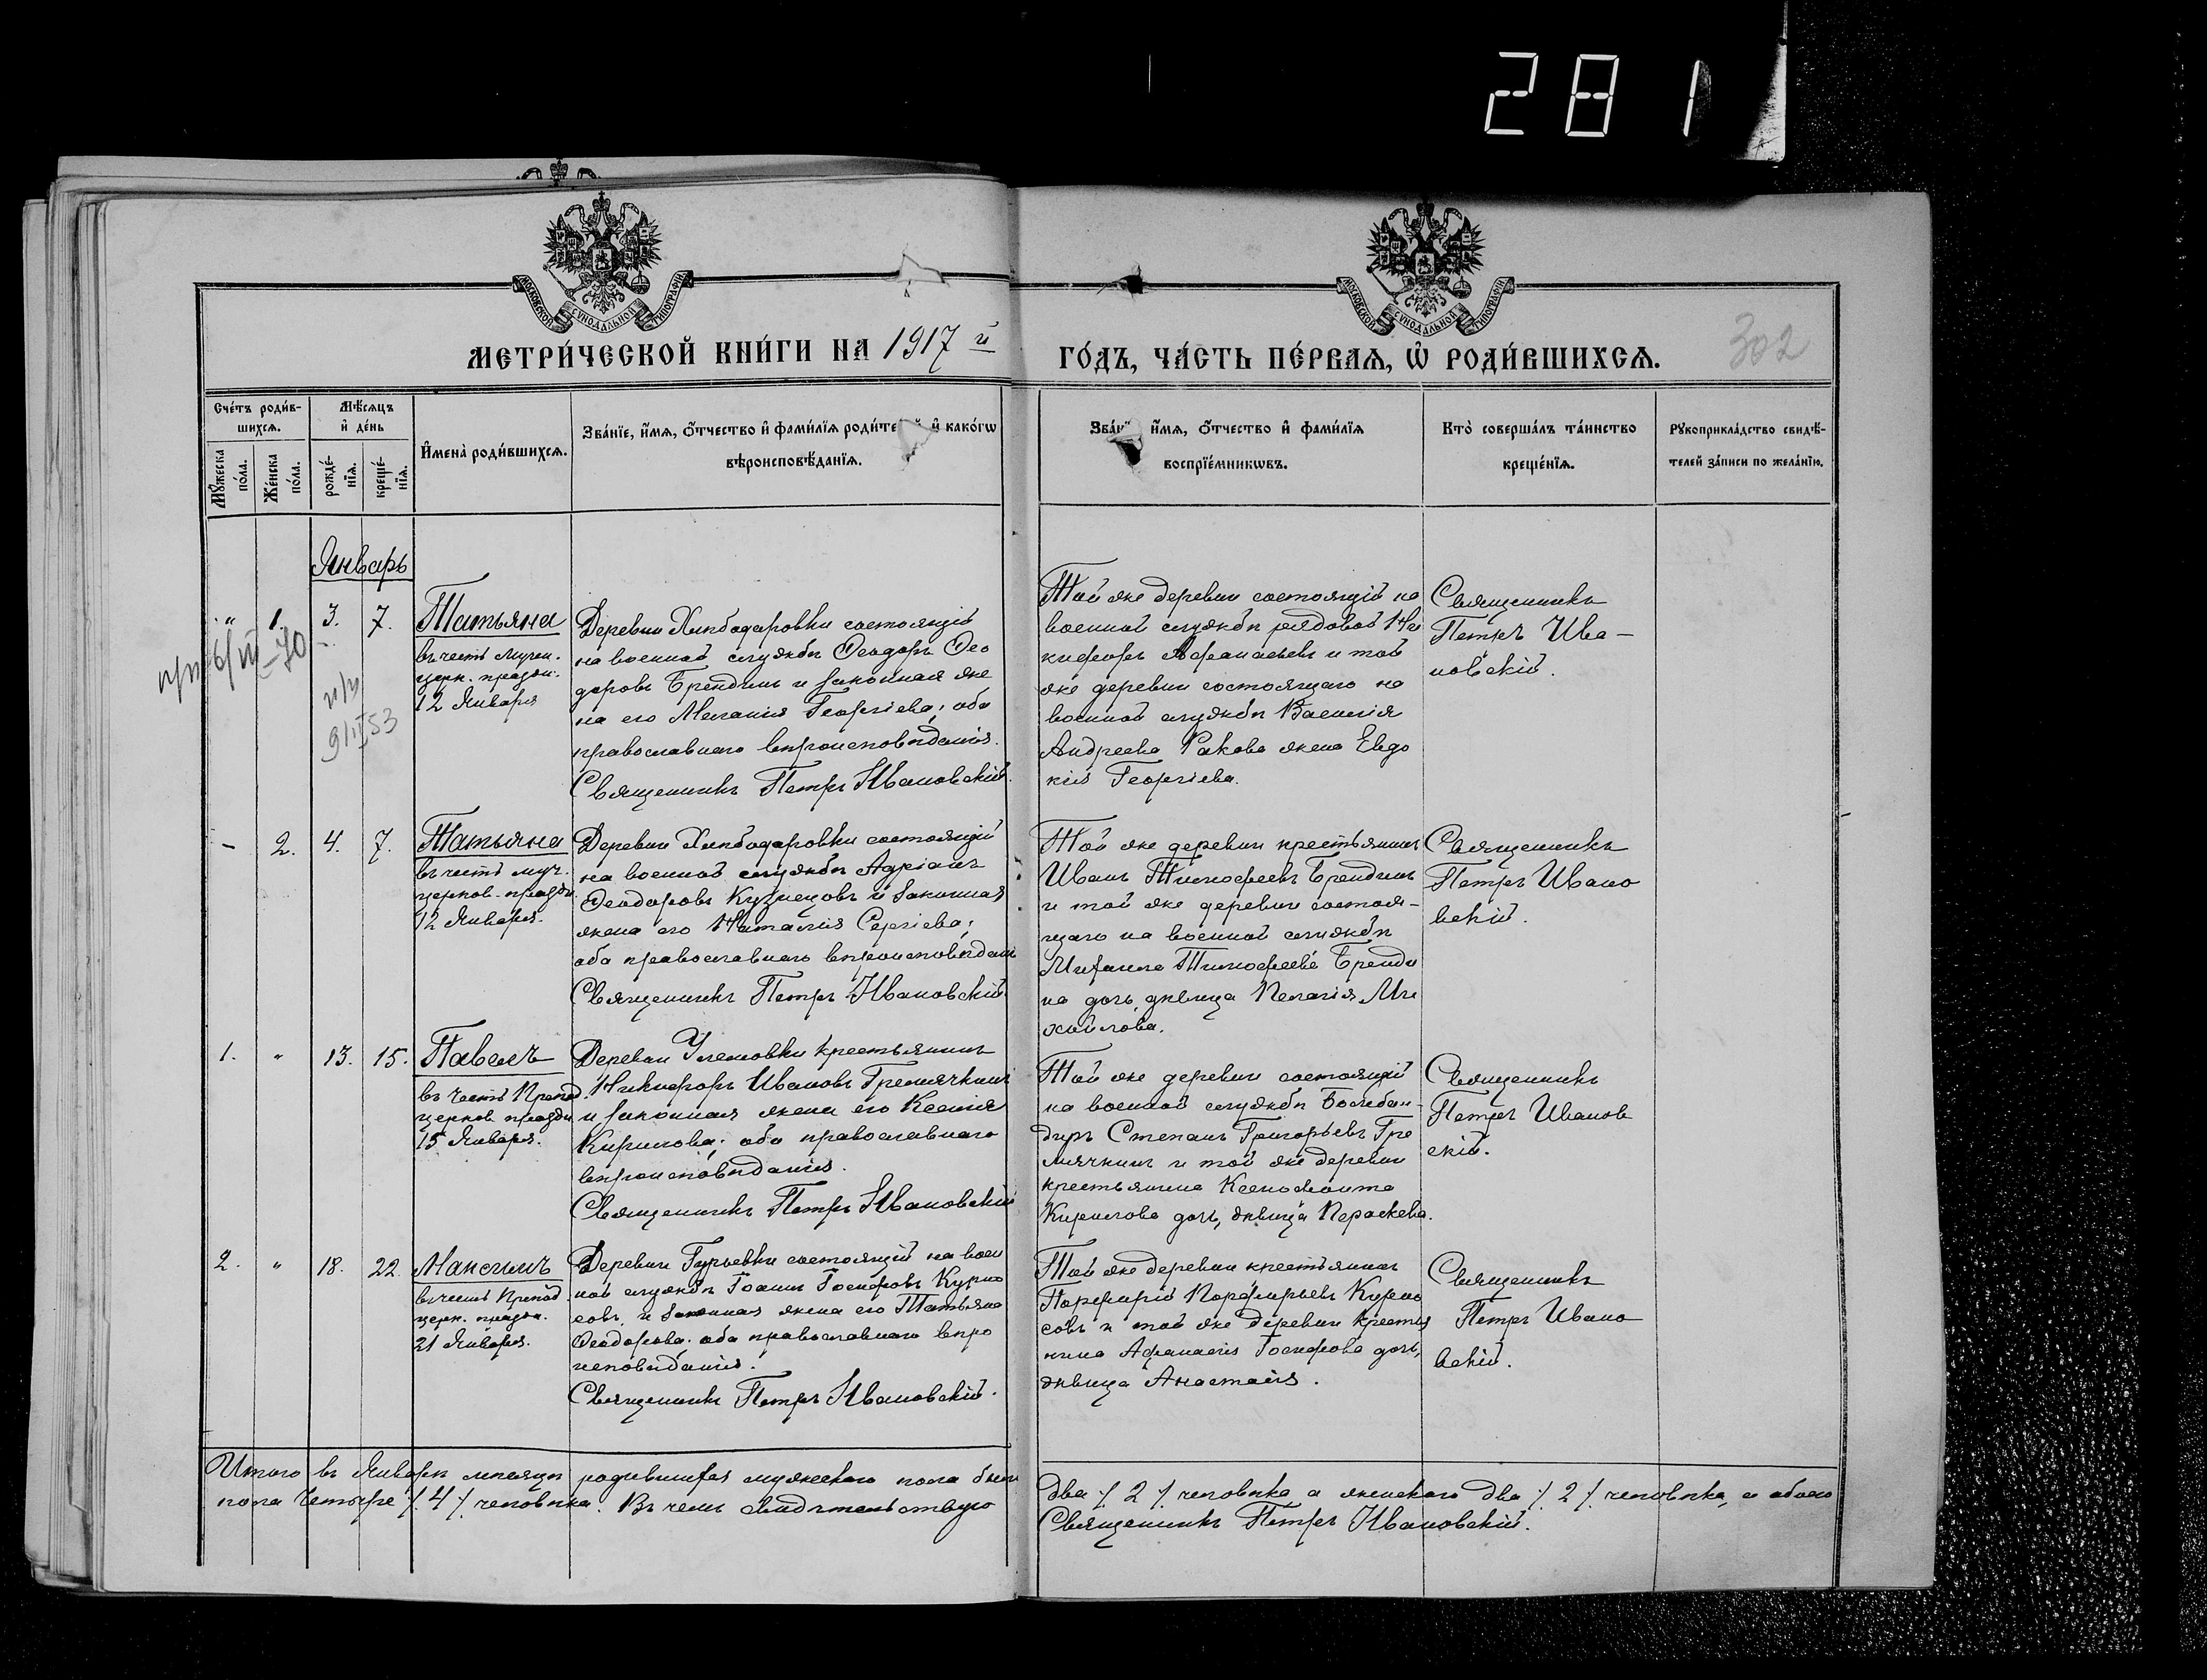 281
МОСКОВСКОЙ СУНОДАЛЬНОЙ ТИПОГРАФІИ
МОСКОВСКОЙ СУНОДАЛЬНОЙ ТИПОГРАФІИ
МЕТРИ́ЧЕСКОЙ КНИ́ГИ НА 1917 й ГО́ДЪ, ЧА́СТЬ ПЕ́РВАЯ, Ѡ РОДИ́ВШИХСЯ.
302
Сче́тъ роди́в-
шихся.
Мѣсяцъ
и де́нь
Му́жеска по́ла.
Же́нска по́ла.
рожде́-нїя.
креще́-нїя.
Имена̀ роди́вшихся.
Зва́нїе, имя, о́тчество и фами́лїя роди́те й и како́гѡ
вѣроисповѣ́данїя.
Зва́нї имя, о́тчество и фами́лїя
воспрїе́мникѡвъ.
Кто̀ соверша́лъ та́инство
креще́нїя.
Рукоприкла́дство свидѣ́-
телей за́писи по жела́нїю.
Январь
" 1. 3. 7. Татьяна
въ честь мучен.
церк. праздн.
12 Января
9/II 53
Деревни Хлѣбодаровки состоящій
на военной службѣ Ѳеодоръ Ѳео
доровъ Брендинъ и законная же
на его Меланія Георгіева; оба
православнаго вѣроисповѣданія.
Священникъ Петръ Ивановскій.
Той же деревни состоящій на
военной службѣ рядовой Ни
кифоръ Аѳанасьевъ и той
же деревни состоящаго на
военной службѣ Василія
Андреева Ракова жена Евдо
кія Георгіева.
Священникъ
Петръ Ива-
новскій.
- 2. 4. 7. Татьяна
въ честь муч.
церков. праздн.
12 Января.
Деревни Хлѣбодаровки состоящій
на военной службѣ Адріанъ
Ѳеодоровъ Кузнецовъ и законная
жена его Наталія Сергіева;
оба православнаго вѣроисповѣдан
Священникъ Петръ Ивановскій
Той же деревни крестьянинъ
Иванъ Тимоѳеевъ Брендинъ
и той же деревни состоя-
щаго на военной службѣ
Михаила Тимоѳеева Бренди
на дочь, дѣвица Пелагія Ми
хайлова.
Священникъ
Петръ Ивано
вскій.
1. " 13. 15. Павелъ
въ честь Препод.
церков. праздн
15 Января.
Деревни Улешовки крестьянинъ
Никифоръ Ивановъ Гремячкинъ
и законная жена его Ксенія
Кирилова; оба православнаго
вѣроисповѣданія.
Священникъ Петръ Ивановскій
Той же деревни состоящій
на военной службѣ Бомбан-
диръ Степанъ Григорьевъ Гре
мячкинъ и той же деревни
крестьянина Ксенофонта
Кирилова дочь, дѣвица Параскева.
Священникъ
Петръ Иванов
скій.
2. " 18. 22. Максимъ
въ честь Препод.
церк. праздн.
21 Января.
Деревни Гурьевки состоящій на воен
ной службѣ Іоаннъ Іосифовъ Курно
совъ и законная жена его Татьяна
Ѳеодорова; оба православнаго вѣро
исповѣданія.
Священникъ Петръ Ивановскій.
Той же деревни крестьянинъ
Порфирій Порфирьевъ Курно
совъ и той же деревни крестья
нина Аѳанасія Іосифова дочь,
дѣвица Анастасія.
Священникъ
Петръ Ивано
вскій.
Итого въ Январѣ мѣсяцѣ родившихся мужескаго пола было два /. 2 /. человѣка а женскаго два /. 2 /. человѣка, а обоего
пола четыре /. 4 /. человѣка. Въ чемъ свидѣтельствую Священникъ Петръ Ивановскій.